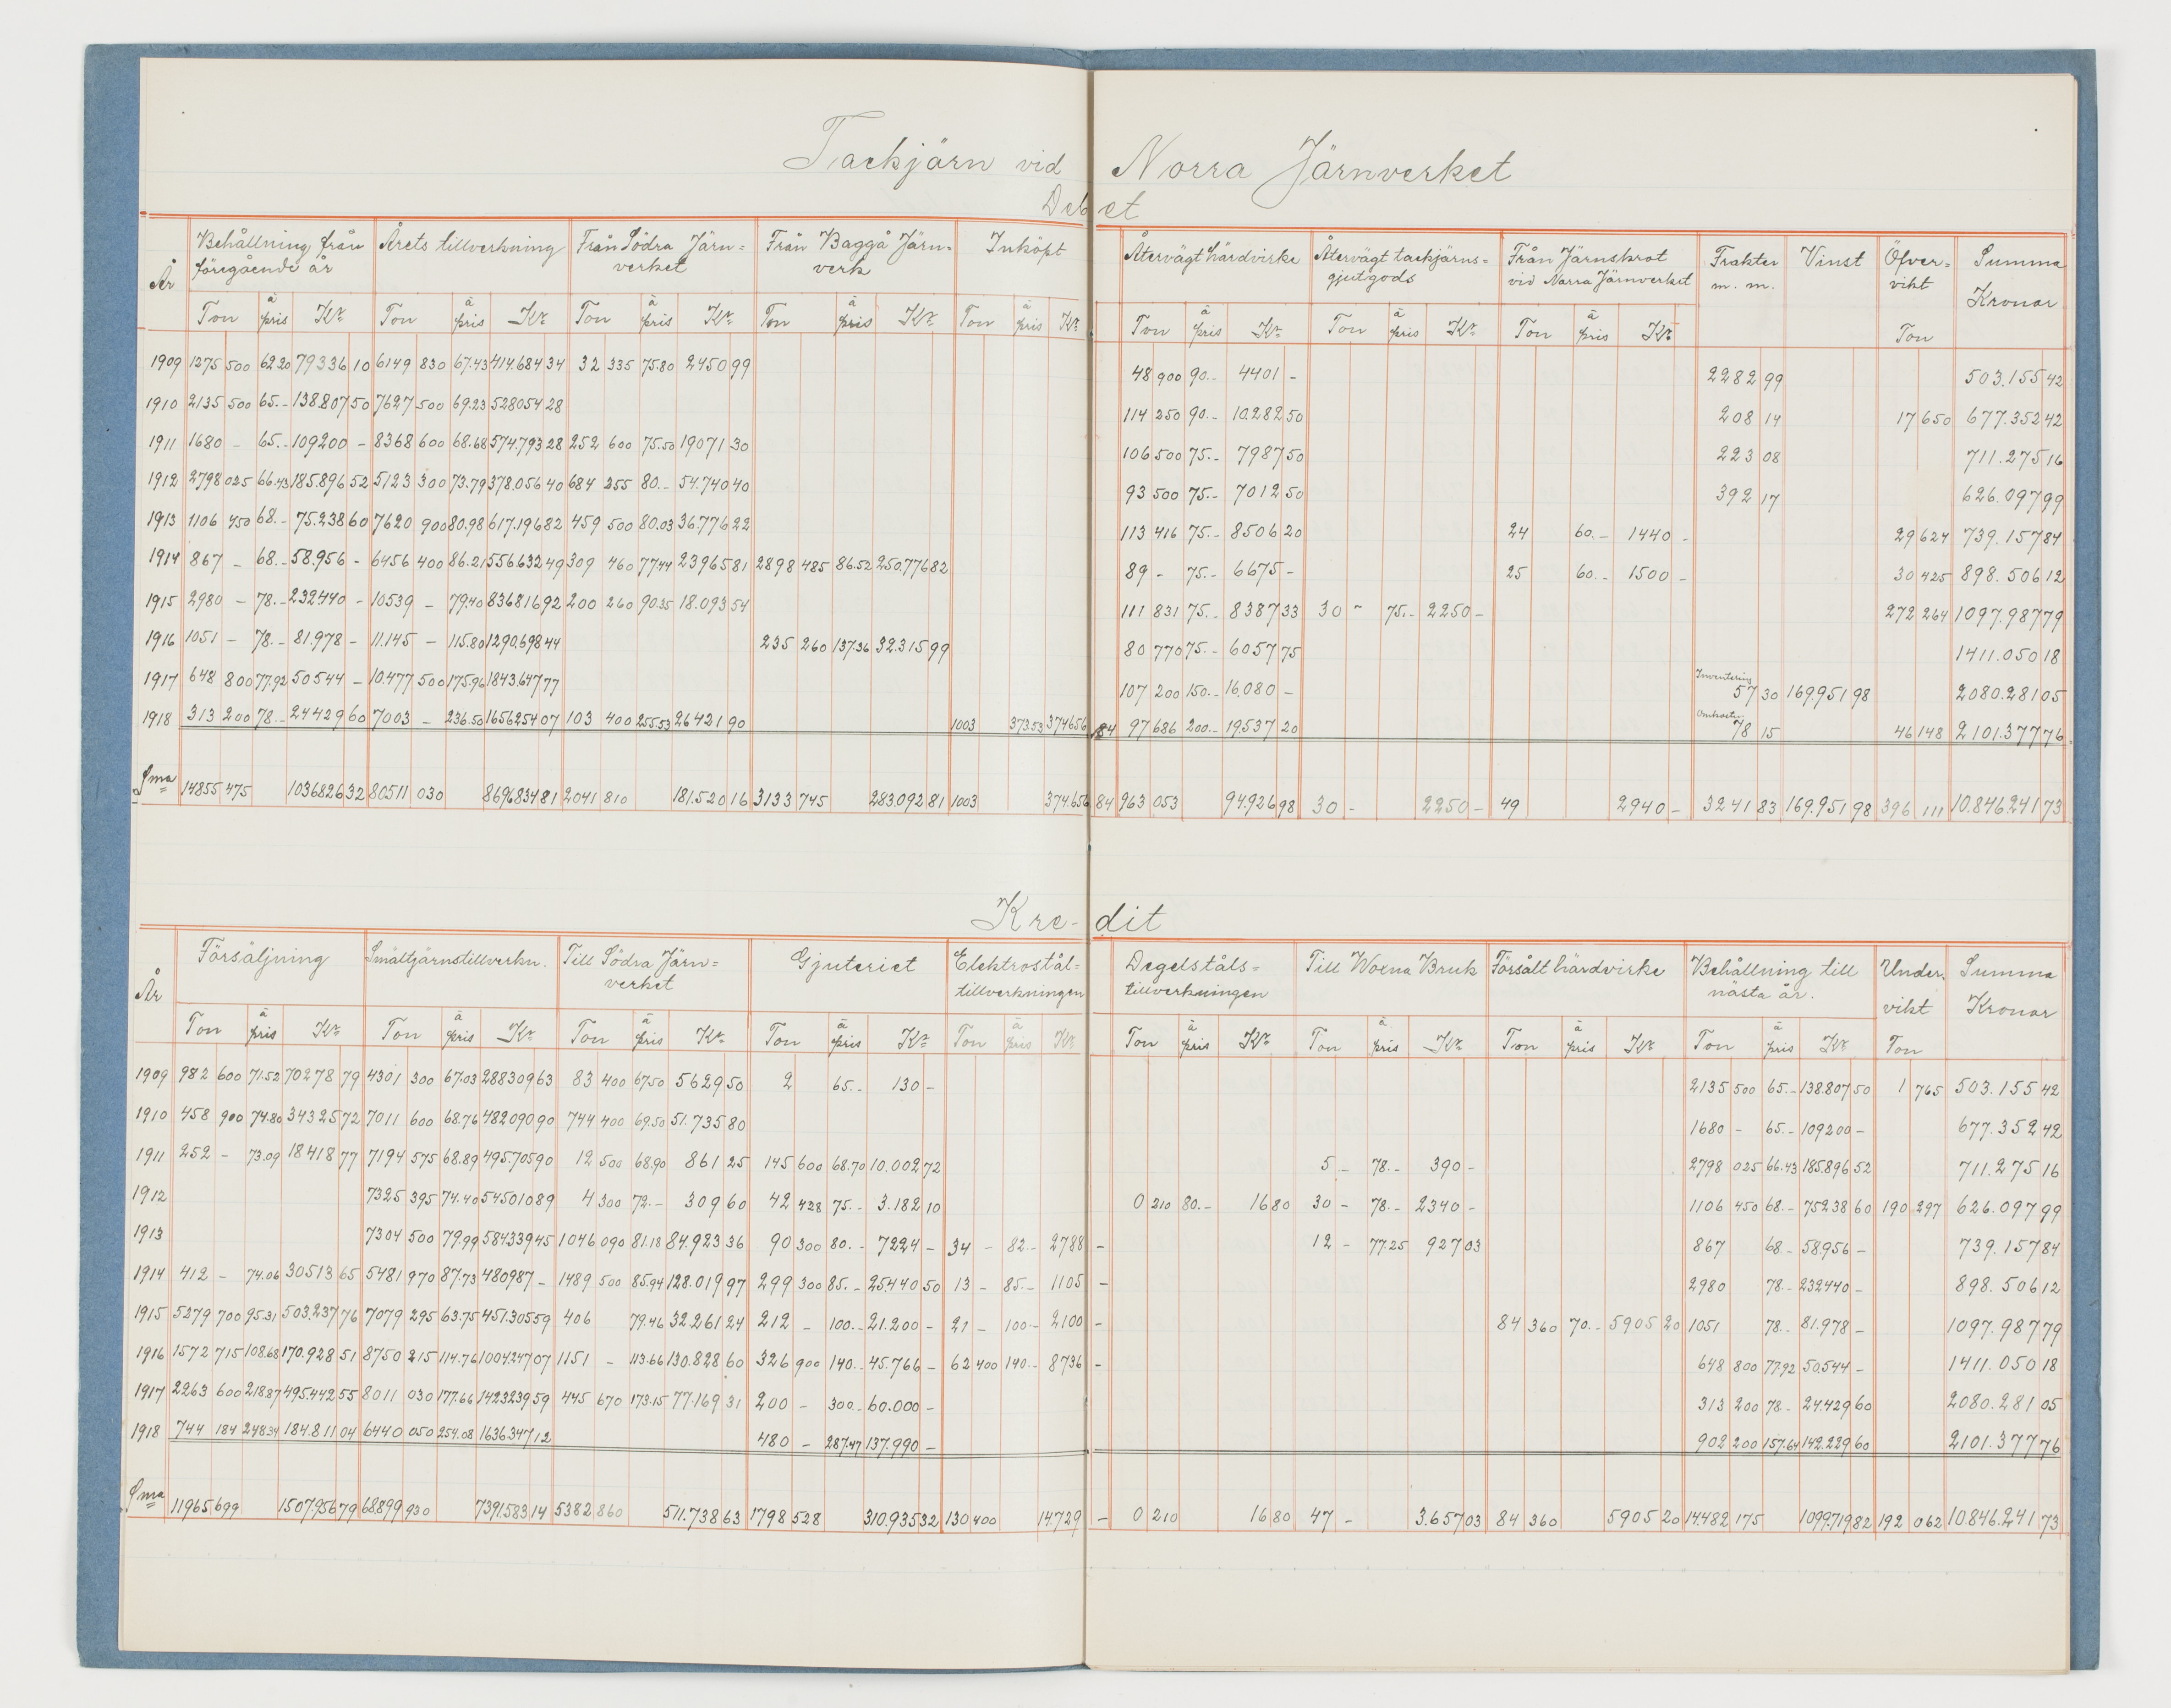 Tackjärn vid Norra Järnverket
Debet
År Behållning från föregående år Årets tillverkning Från Södra Järn= verket Från Baggå Järn= verk Inköpt Återvägt härdvirke Återvägt tackjärns= gjutgods Från Järnskrot vid Norra Järnverket Frakter m. m. Vinst Öfver= vikt Summa Kronor
Ton à pris Kr Ton à pris Kr Ton à pris Kr Ton à pris Kr Ton à pris Kr Ton à pris Kr Ton à pris Kr Ton à pris Kr Ton
1909 1275 500 62 20 79336 10 6149 830 67.43 414.684 34 32 335 75.80 2450 99 48 900 90.- 4401 - 2282 99 503.155 42
1910 2135 500 65.- 138.807 50 7627 500 69.23 528054 28 114 250 90.- 10.282 50 208 14 17 650 677.352 42
1911 1680 - 65.- 109200 - 8368 600 68.68 574.793 28 252 600 75.50 19071 30 106 500 75.- 7987 50 223 08 711.275 16
1912 2798 025 66.43 185.896 52 5123 300 73.79 378.056 40 684 255 80.- 54.740 40 93 500 75.- 7012 50 392 17 626.097 99
1913 1106 450 68.- 75.238 60 7620 900 80.98 617.196 82 459 500 80.03 36.776 22 113 416 75.- 8506 20 24 60.- 1440 - 29 624 739.157 84
1914 867 - 68.- 58.956 - 6456 400 86.21 556.632 49 309 460 77.44 23965 81 2898 485 86.52 250.776 82 89 - 75.- 6675 - 25 60.- 1500 - 30 425 898.506 12
1915 2980 - 78.- 232440 - 10539 - 79.40 836816 92 200 260 90.35 18.093 54 111 831 75.- 8387 33 30 - 75.- 2250 - 272 264 1097.987 79
1916 1051 - 78.- 81.978 - 11.145 - 115.80 1290.698 44 235 260 137.36 32.315 99 80 770 75.- 6057 75 1411.050 18
1917 648 800 77.92 50544 - 10.477 500 175.96 1843.647 77 107 200 150.- 16.080 - Inventering 57 30 169.951 98 2080.281 05
1918 313 200 78.- 24429 60 7003 - 236.50 1656254 07 103 400 255.53 26421 90 1003 373.53 374656 84 97 686 200.- 19.537 20 Omkostn. 78 15 46 148 2101.377 76
Sma 14855 475 1036826 32 80511 030 8696834 81 2041 810 181.520 16 3133 745 283.092 81 1003 374.656 84 963 053 94.926 98 30 - 2250 - 49 2940 - 3241 83 169.951 98 396 111 10.846.241 73
Kre-dit
År Försäljning Smältjärnstillverkn. Till Södra Järn= verket Gjuteriet Elektrostål= tillverkningen Degelståls= tillverkningen Till Woxna Bruk Försålt härdvirke Behållning till nästa år. Under. vikt Summa Kronor
Ton à pris Kr Ton à pris Kr Ton à pris Kr Ton à pris Kr Ton à pris Kr Ton à pris Kr Ton à pris Kr Ton à pris Kr Ton à pris Kr Ton
1909 982 600 71.52 70278 79 4301 300 67.03 288309 63 83 400 67.50 5629 50 2 65.- 130 - 2135 500 65.- 138.807 50 1 765 503.155 42
1910 458 900 74.80 34325 72 7011 600 68.76 482090 90 744 400 69.50 51.735 80 1680 - 65.- 109200 - 677.352 42
1911 252 - 73.09 18418 77 7194 575 68.89 495.705 90 12 500 68.90 861 25 145 600 68.70 10.002 72 5 - 78.- 390 - 2798 025 66.43 185.896 52 711.275 16
1912 7325 395 74.40 545010 89 4 300 72.- 309 60 42 428 75.- 3.182 10 0 210 80.- 16 80 30 - 78.- 2340 - 1106 450 68.- 75238 60 190 297 626.097 99
1913 7304 500 79.99 584339 45 1046 090 81.18 84.923 36 90 300 80.- 7224 - 34 - 82.- 2788 - 12 - 77.25 927 03 867 68.- 58.956 - 739.157 84
1914 412 - 74.06 30513 65 5481 970 87.73 480987 - 1489 500 85.94 128.019 97 299 300 85.- 25.440 50 13 - 85.- 1105 - 2980 78.- 232440 - 898.506 12
1915 5279 700 95.31 503.237 76 7079 295 63.75 451.305 59 406 79.46 32.261 24 212 - 100.- 21.200 - 21 - 100.- 2100 - 84 360 70.- 5905 20 1051 78.- 81.978 - 1097.987 79
1916 1572 715 108.68 170.928 51 8750 215 114.76 1004.247 07 1151 - 113.66 130.828 60 326 900 140.- 45.766 - 62 400 140.- 8736 - 648 800 77.92 50.544 - 1411.050 18
1917 2263 600 218.87 495.442 55 8011 030 177.66 1423239 59 445 670 173.15 77.169 31 200 - 300.- 60.000 - 313 200 78.- 24.429 60 2080.281 05
1918 744 184 248.34 184.811 04 6440 050 254.08 1636.347 12 480 - 287.47 137.990 - 902 200 157.64 142.229 60 2101.377 76
Sma 11965 699 1507.956 79 68.899 930 7391.583 14 5382 860 511.738 63 1798 528 310.935 32 130 400 14.729 - 0 210 16 80 47 - 3.657 03 84 360 5905 20 14.482 175 1099.719 82 192 062 10.846.241 73